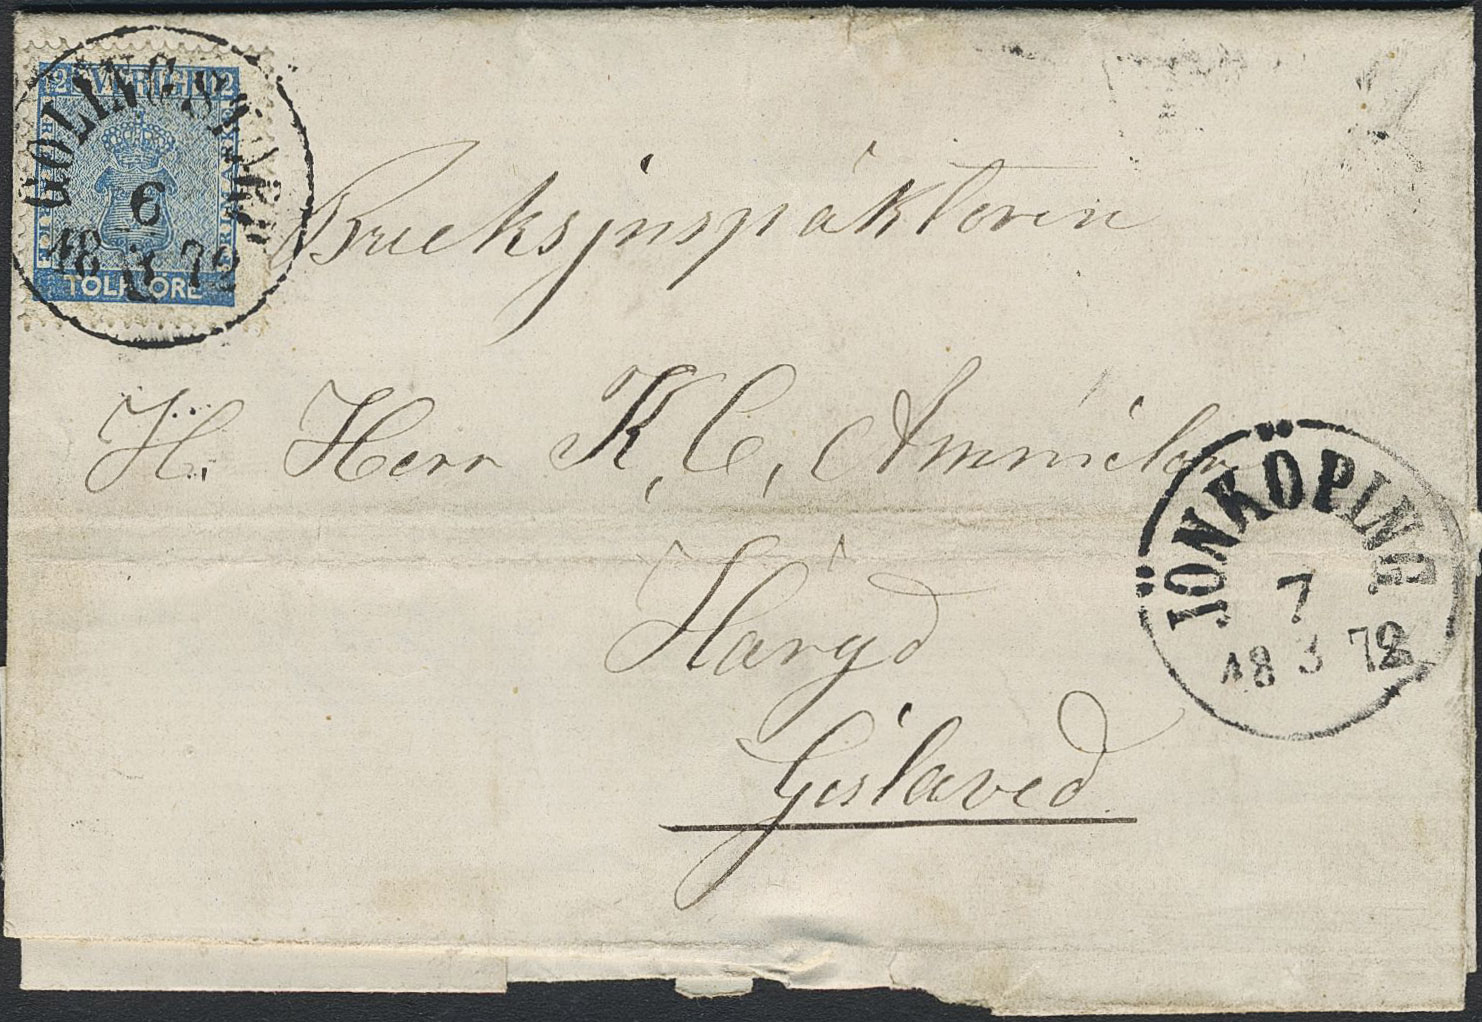 SVERIGE
TOLF ÖRE
GÖLINGSTORP
6
18 3 72
Bruksjnspäktoren
H. Herr K, C, Ammilon
Haryd
Gislaved
JÖNKÖPING
7
18 3 72